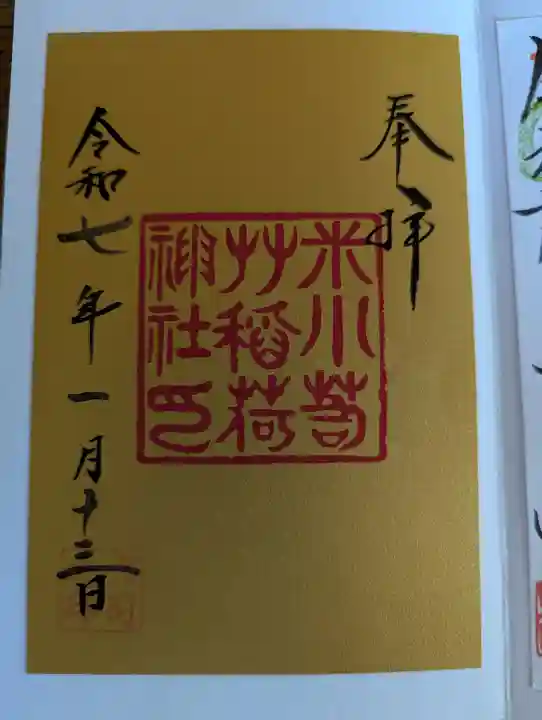 奉拝
米川若艸稲荷神社印
令和七年一月十三日